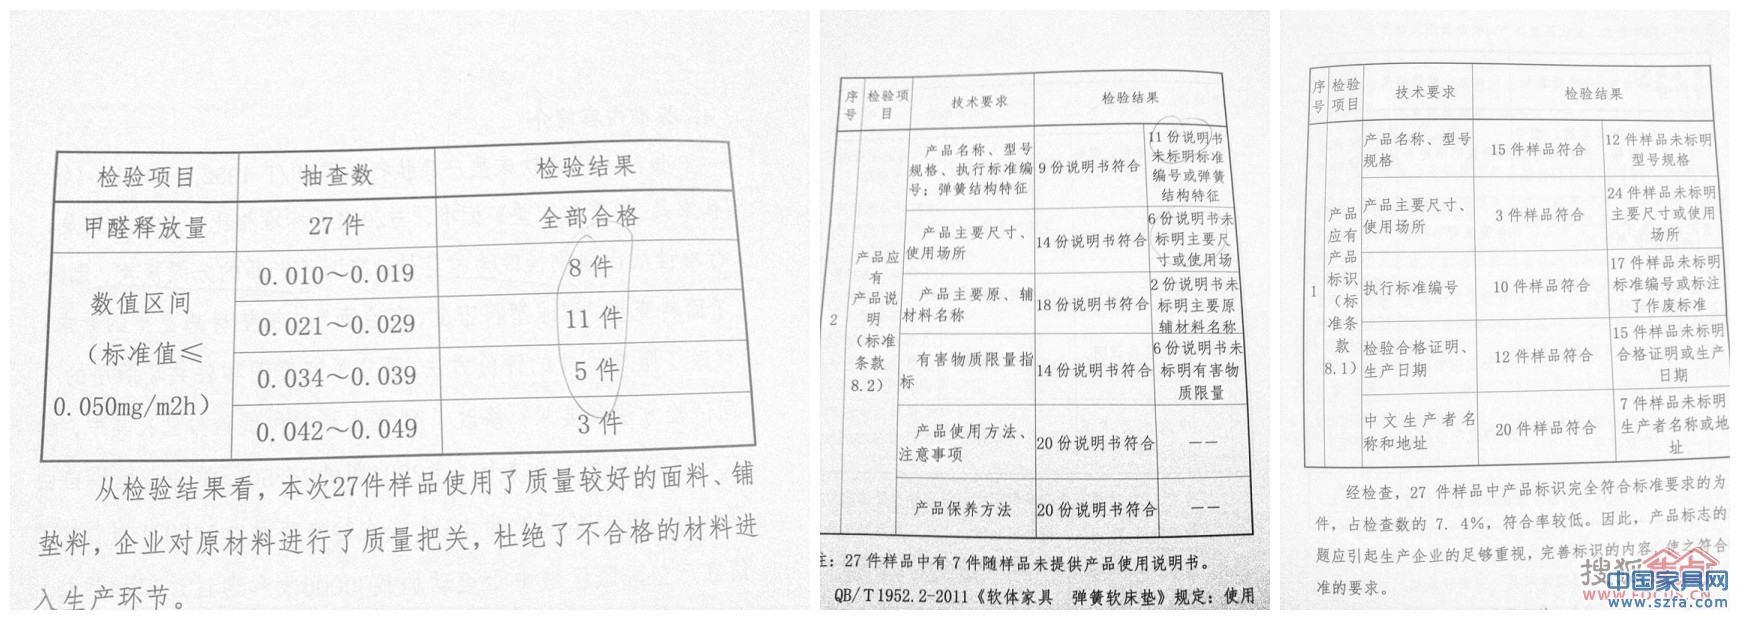 检验项目 抽查数 检验结果
甲醛释放量 27 件 全部合格
数值区间
（标准值≤
0.050mg/m2h）
0.010～0.019 8 件
0.021～0.029 11 件
0.034～0.039 5 件
0.042～0.049 3 件
从检验结果看，本次27件样品使用了质量较好的面料、铺
垫料，企业对原材料进行了质量把关，杜绝了不合格的材料进
入生产环节。
序
号
检验项
目
技术要求 检验结果
2
产品应
有
产品说
明
（标准
条款
8.2）
产品名称、型号
规格、执行标准编
号；弹簧结构特征
9 份说明书符合
11 份说明书
未标明标准
编号或弹簧
结构特征
产品主要尺寸、
使用场所
14 份说明书符合
6 份说明书未
标明主要尺
寸或使用场
产品主要原、辅
材料名称
18 份说明书符合
2 份说明书未
标明主要原
辅材料名称
有害物质限量指
标
14 份说明书符合
6 份说明书未
标明有害物
质限量
产品使用方法、
注意事项
20 份说明书符合
——
产品保养方法
20 份说明书符合
——
注：27 件样品中有 7 件随样品未提供产品使用说明书。
QB/T 1952.2-2011《软体家具 弹簧软床垫》规定：使用
序
号
检验
项目
技术要求 检验结果
1
产品
应有
产品
标识
（标
准条
款
8.1）
产品名称、型号
规格
15 件样品符合
12 件样品未标明
型号规格
产品主要尺寸、
使用场所
3 件样品符合
24 件样品未标明
主要尺寸或使用
场所
执行标准编号
10 件样品符合
17 件样品未标明
标准编号或标注
了作废标准
检验合格证明、
生产日期
12 件样品符合
15 件样品未标明
合格证明或生产
日期
中文生产者名
称和地址
20 件样品符合
7 件样品未标明
生产者名称或地
址
经检查，27 件样品中产品标识完全符合标准要求的为
件，占检查数的 7. 4%，符合率较低。因此，产品标志的
题应引起生产企业的足够重视，完善标识的内容，使之符合
准的要求。
搜狐焦点
FOCUS.CN
中国家具网
www.szfa.com